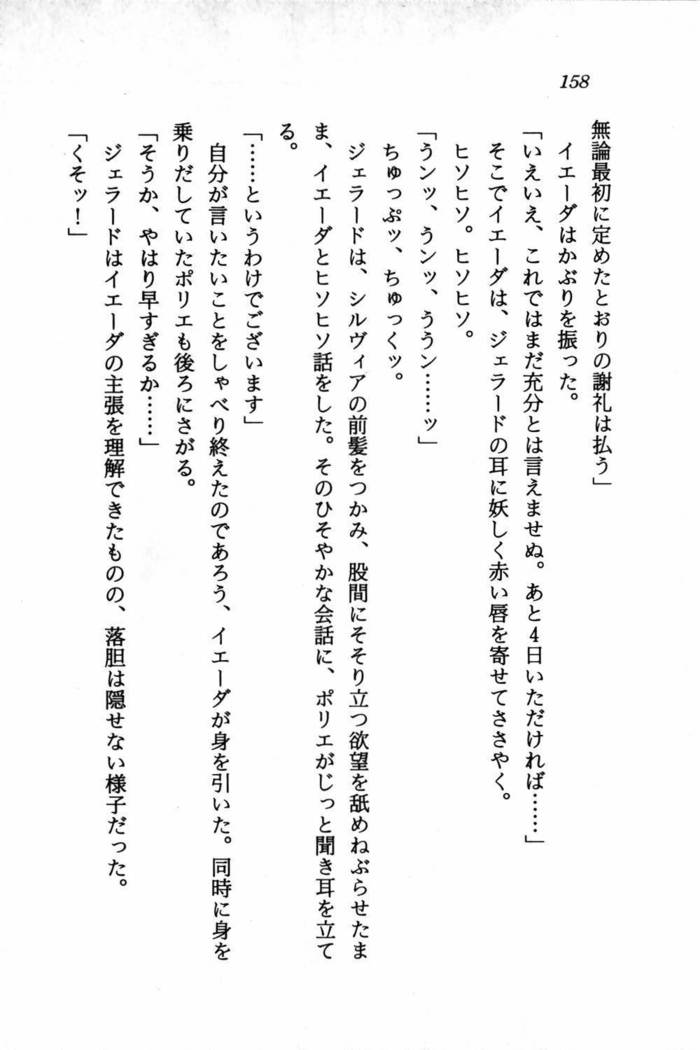 158
無論最初に定めたとおりの謝礼は払う」
イエーダはかぶりを振った。
「いえいえ、これではまだ充分とは言えませぬ。あと4日いただければ……」
そこでイエーダは、ジェラードの耳に妖しく赤い唇を寄せてささやく。
ヒソヒソ。ヒソヒソ。
「うンッ、うンッ、ううン……ッ」
ちゅっぷッ、ちゅっくッ。
ジェラードは、シルヴィアの前髪をつかみ、股間にそそり立つ欲望を舐めねぶらせたま
ま、イエーダとヒソヒソ話をした。そのひそやかな会話に、ポリエがじっと聞き耳を立て
る。
「……というわけでございます」
自分が言いたいことをしゃべり終えたのであろう、イエーダが身を引いた。同時に身を
乗りだしていたポリエも後ろにさがる。
「そうか、やはり早すぎるか……」
ジェラードはイエーダの主張を理解できたものの、落胆は隠せない様子だった。
「くそッ！」